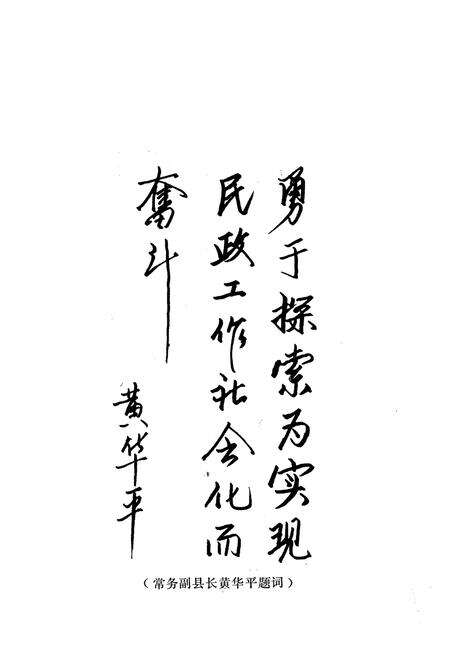 勇于探索为实现
民政工作社会化而
奋斗
黄华平
（常务副县长黄华平题词）